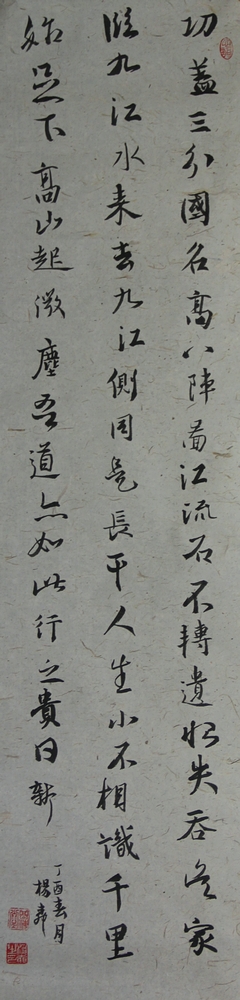 功蓋三分國名高八陣啚江流石不轉遺恨失吞吳家
臨九江水來去九江側同是長干人生小不相識千里
始足下高山起微塵吾道亦如此行之貴日新
丁酉春月
楊